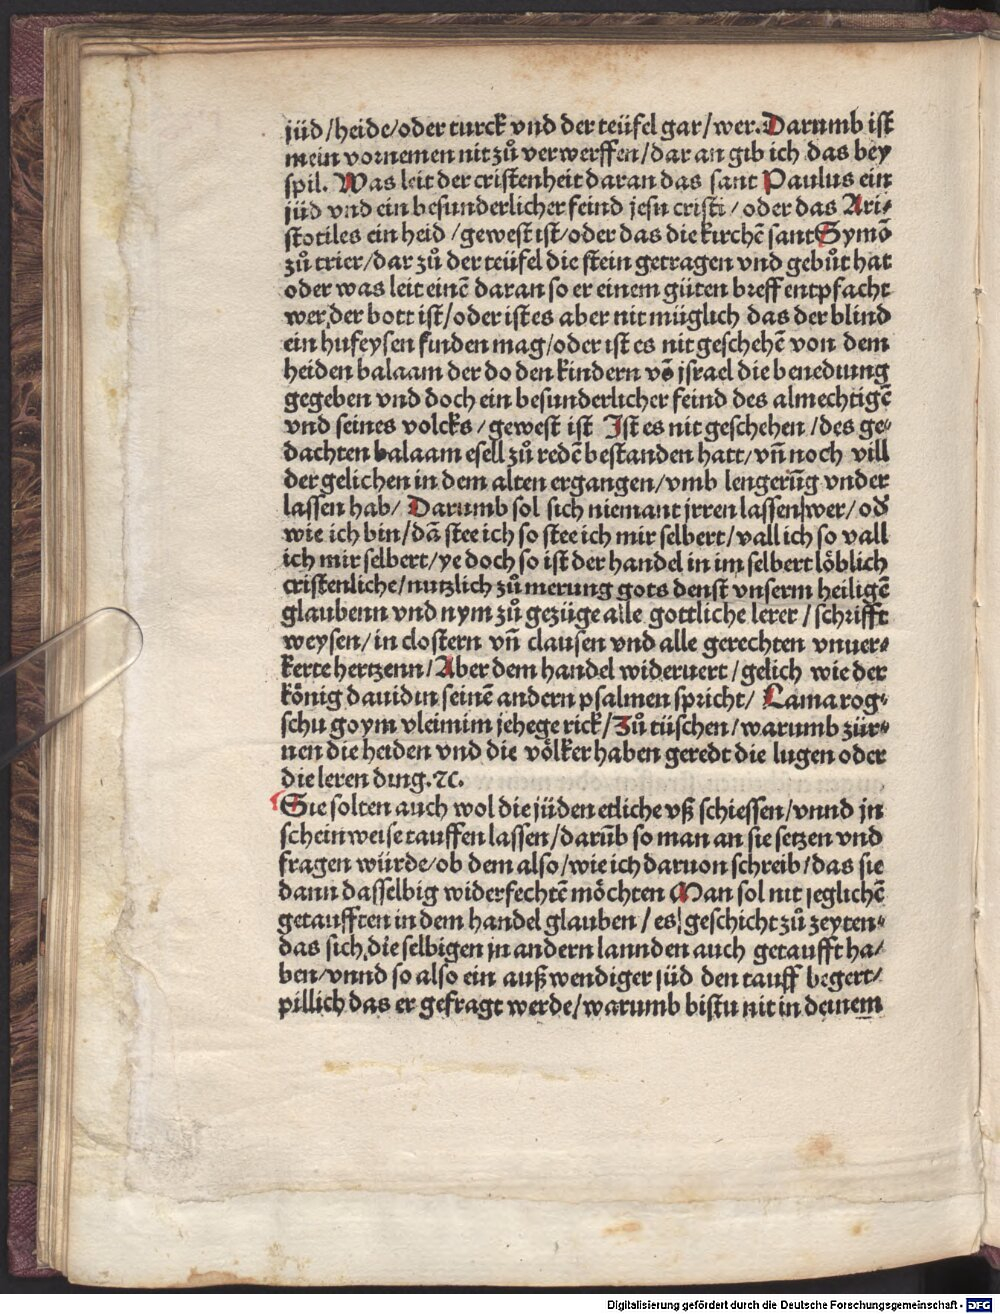 jüd/heide/oder turck vnd der teüfel gar/wer. Darumb ist
mein vornemen nit zů verwerffen/dar an gib ich das bey
spil. Was leit der cristenheit daran das sant Paulus ein
jüd vnd ein besunderlicher feind jesu cristi/oder das Ari⸗
stotiles ein heid/gewest ist/oder das die kirchē sant Symō
zů trier/dar zů der teüfel die stein getragen vnd gebůt hat
oder was leit einē daran so er einem güten breff entpfacht
wer der bott ist/oder ist es aber nit müglich das der blind
ein hufeysen finden mag/oder ist es nit geschehē von dem
heiden balaam der do den kindern vō jsrael die benedıung
gegeben vnd doch ein besunderlicher feind des almechtigē
vnd seines volcks/gewest ist Ist es nit geschehen/des ge⸗
dachten balaam esell zů redē bestanden hatt/vn̄ noch vill
der gelichen in dem alten ergangen/vmb lengerūg vnder
lassen hab/ Darumb sol sich niemant jrren lassen wer/od̓
wie ich bin/dā stee ich so stee ich mir selbert/vall ich so vall
ich mir selbert/ye doch so ist der handel in im selbert löblich
cristenliche/nutzlich zů merung gots denst vnserm heiligē
glaubenn vnd nym zů gezüge alle gottliche lerer/schrifft
weysen/in clostern vn̄ clausen vnd alle gerechten vnuer⸗
kerte hertzenn/Aber dem handel wideruert/gelich wie der
könig dauid in seinē andern psalmen spricht/ Lamarog⸗
schu goym vleimim jehege rick/Zů tüschen/warumb zür⸗
nen die heiden vnd die völker haben geredt die lugen oder
die leren ding.⁊c.
Sie solten auch wol die jüden etliche vß schiessen/vnnd jn
schein weise tauffen lassen/darūb so man an sie setzen vnd
fragen würde/ob dem also/wie ich daruon schreib/das sie
dann dasselbig widerfechtē möchten Man sol nit jeglichē
getaufften in dem handel glauben/es geschicht zů zeyten⸗
das sich die selbigen jn andern lannden auch getaufft ha⸗
ben/vnnd so also ein außwendiger jüd den tauff begert/
pillich das er gefragt werde/warumb bistu nit in deinem
Digitalisierung gefördert durch die Deutsche Forschungsgemeinschaft - DFG